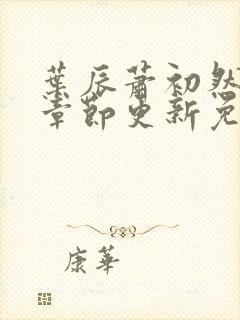 葉辰蕭初然
章節更新免
康華